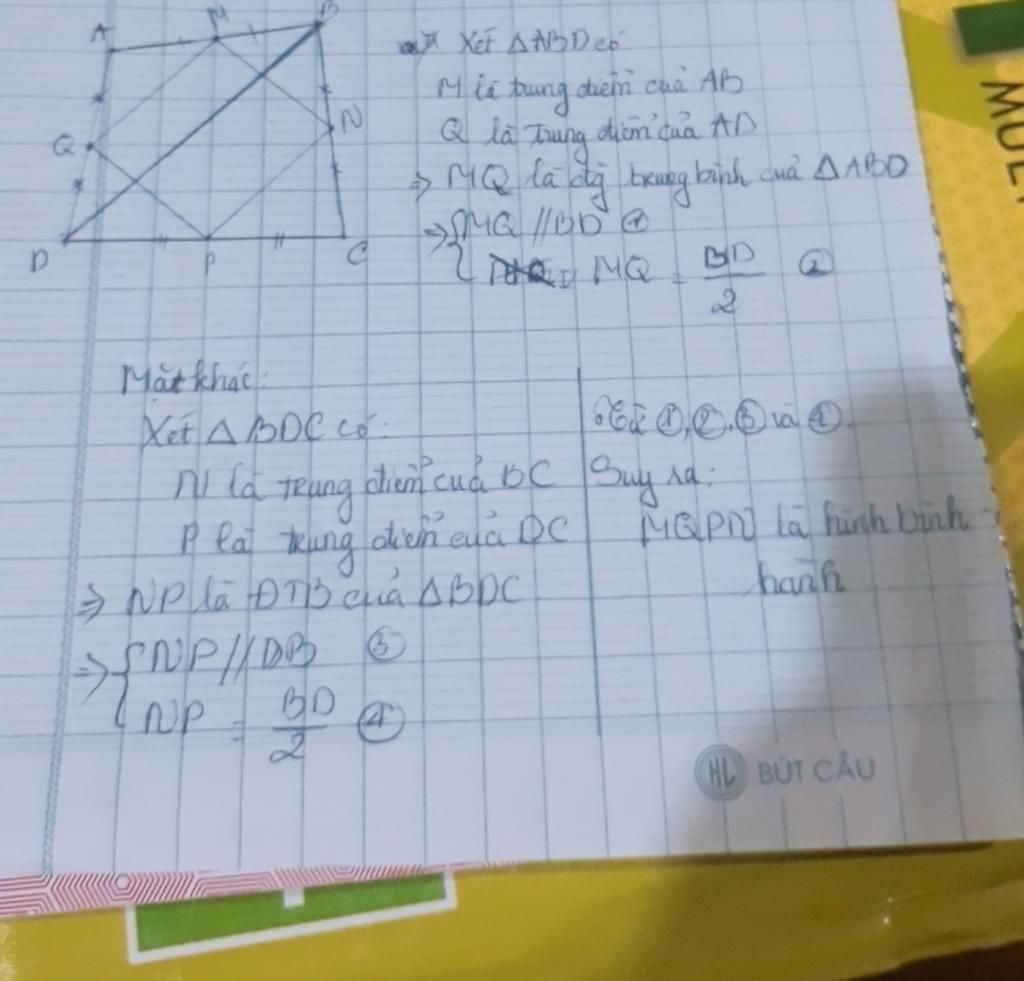 A M B
Q N
D P C
Xét ΔABD có
M là trung điểm của AB
Q là trung điểm của AD
⇒ MQ là đg trung bình của ΔABD
⇒ { MQ // BD ①
MQ = BD/2 ②
Mặt khác:
Xét ΔBDC có:
N là trung điểm của BC
P là trung điểm của DC
⇒ NP là ĐTB của ΔBDC
⇒ { NP // DB ③
NP = BD/2 ④
Từ ①, ②, ③ và ④
Suy ra:
MQPN là hình bình
hành
HL BÚT CÂU